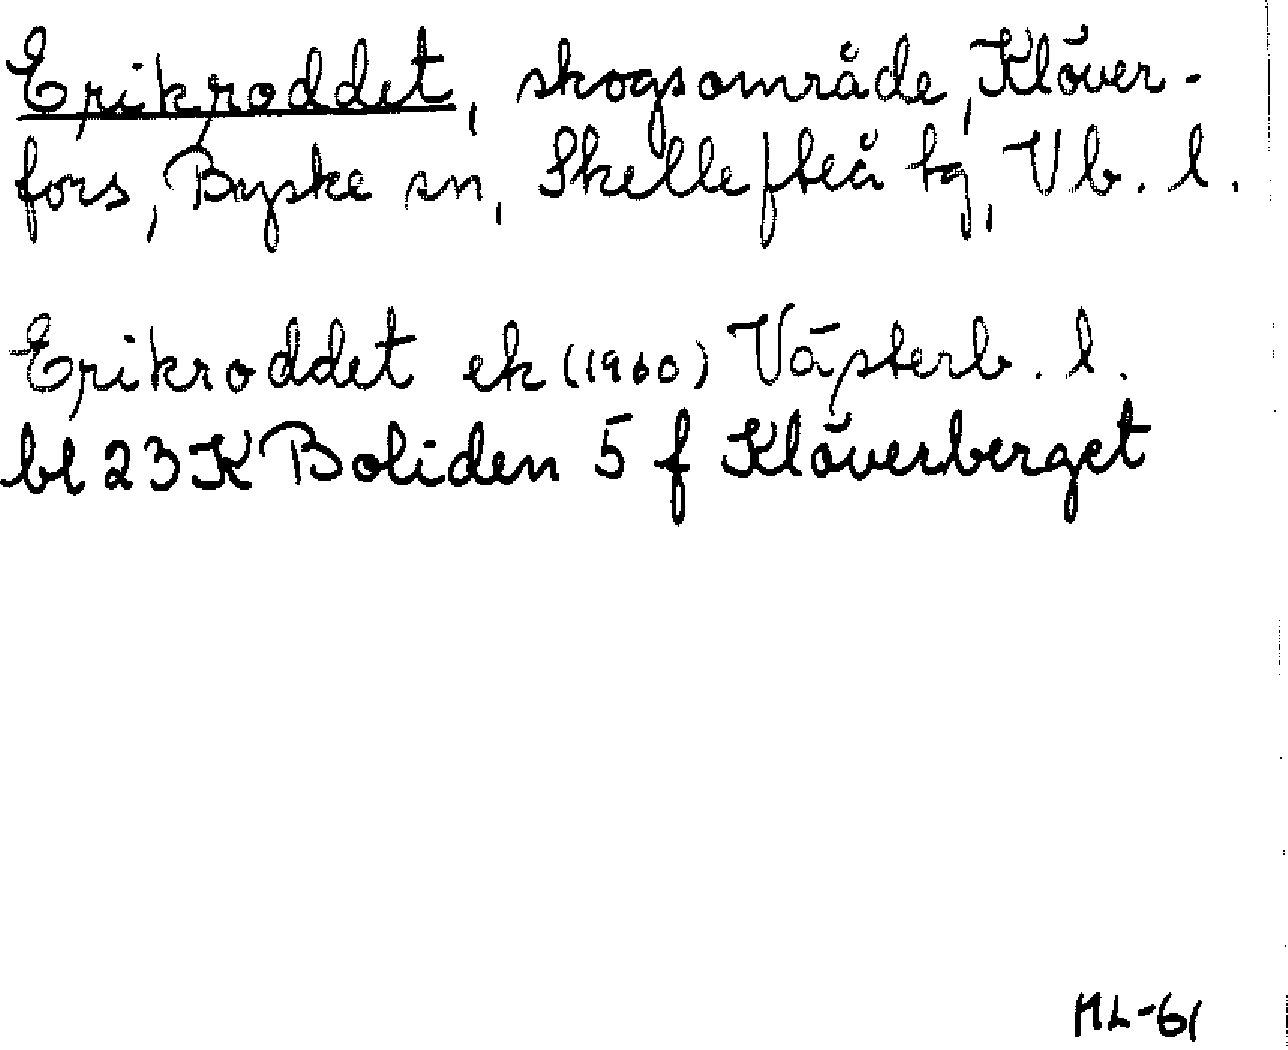 Erikroddet, skogsområde, Klöver-
fors, Byske sn, Skellefteå tg, Vb. l.
Erikroddet ek (1960) Västerb. l.
bl 23 K Boliden 5 f Klöverberget
ML-61